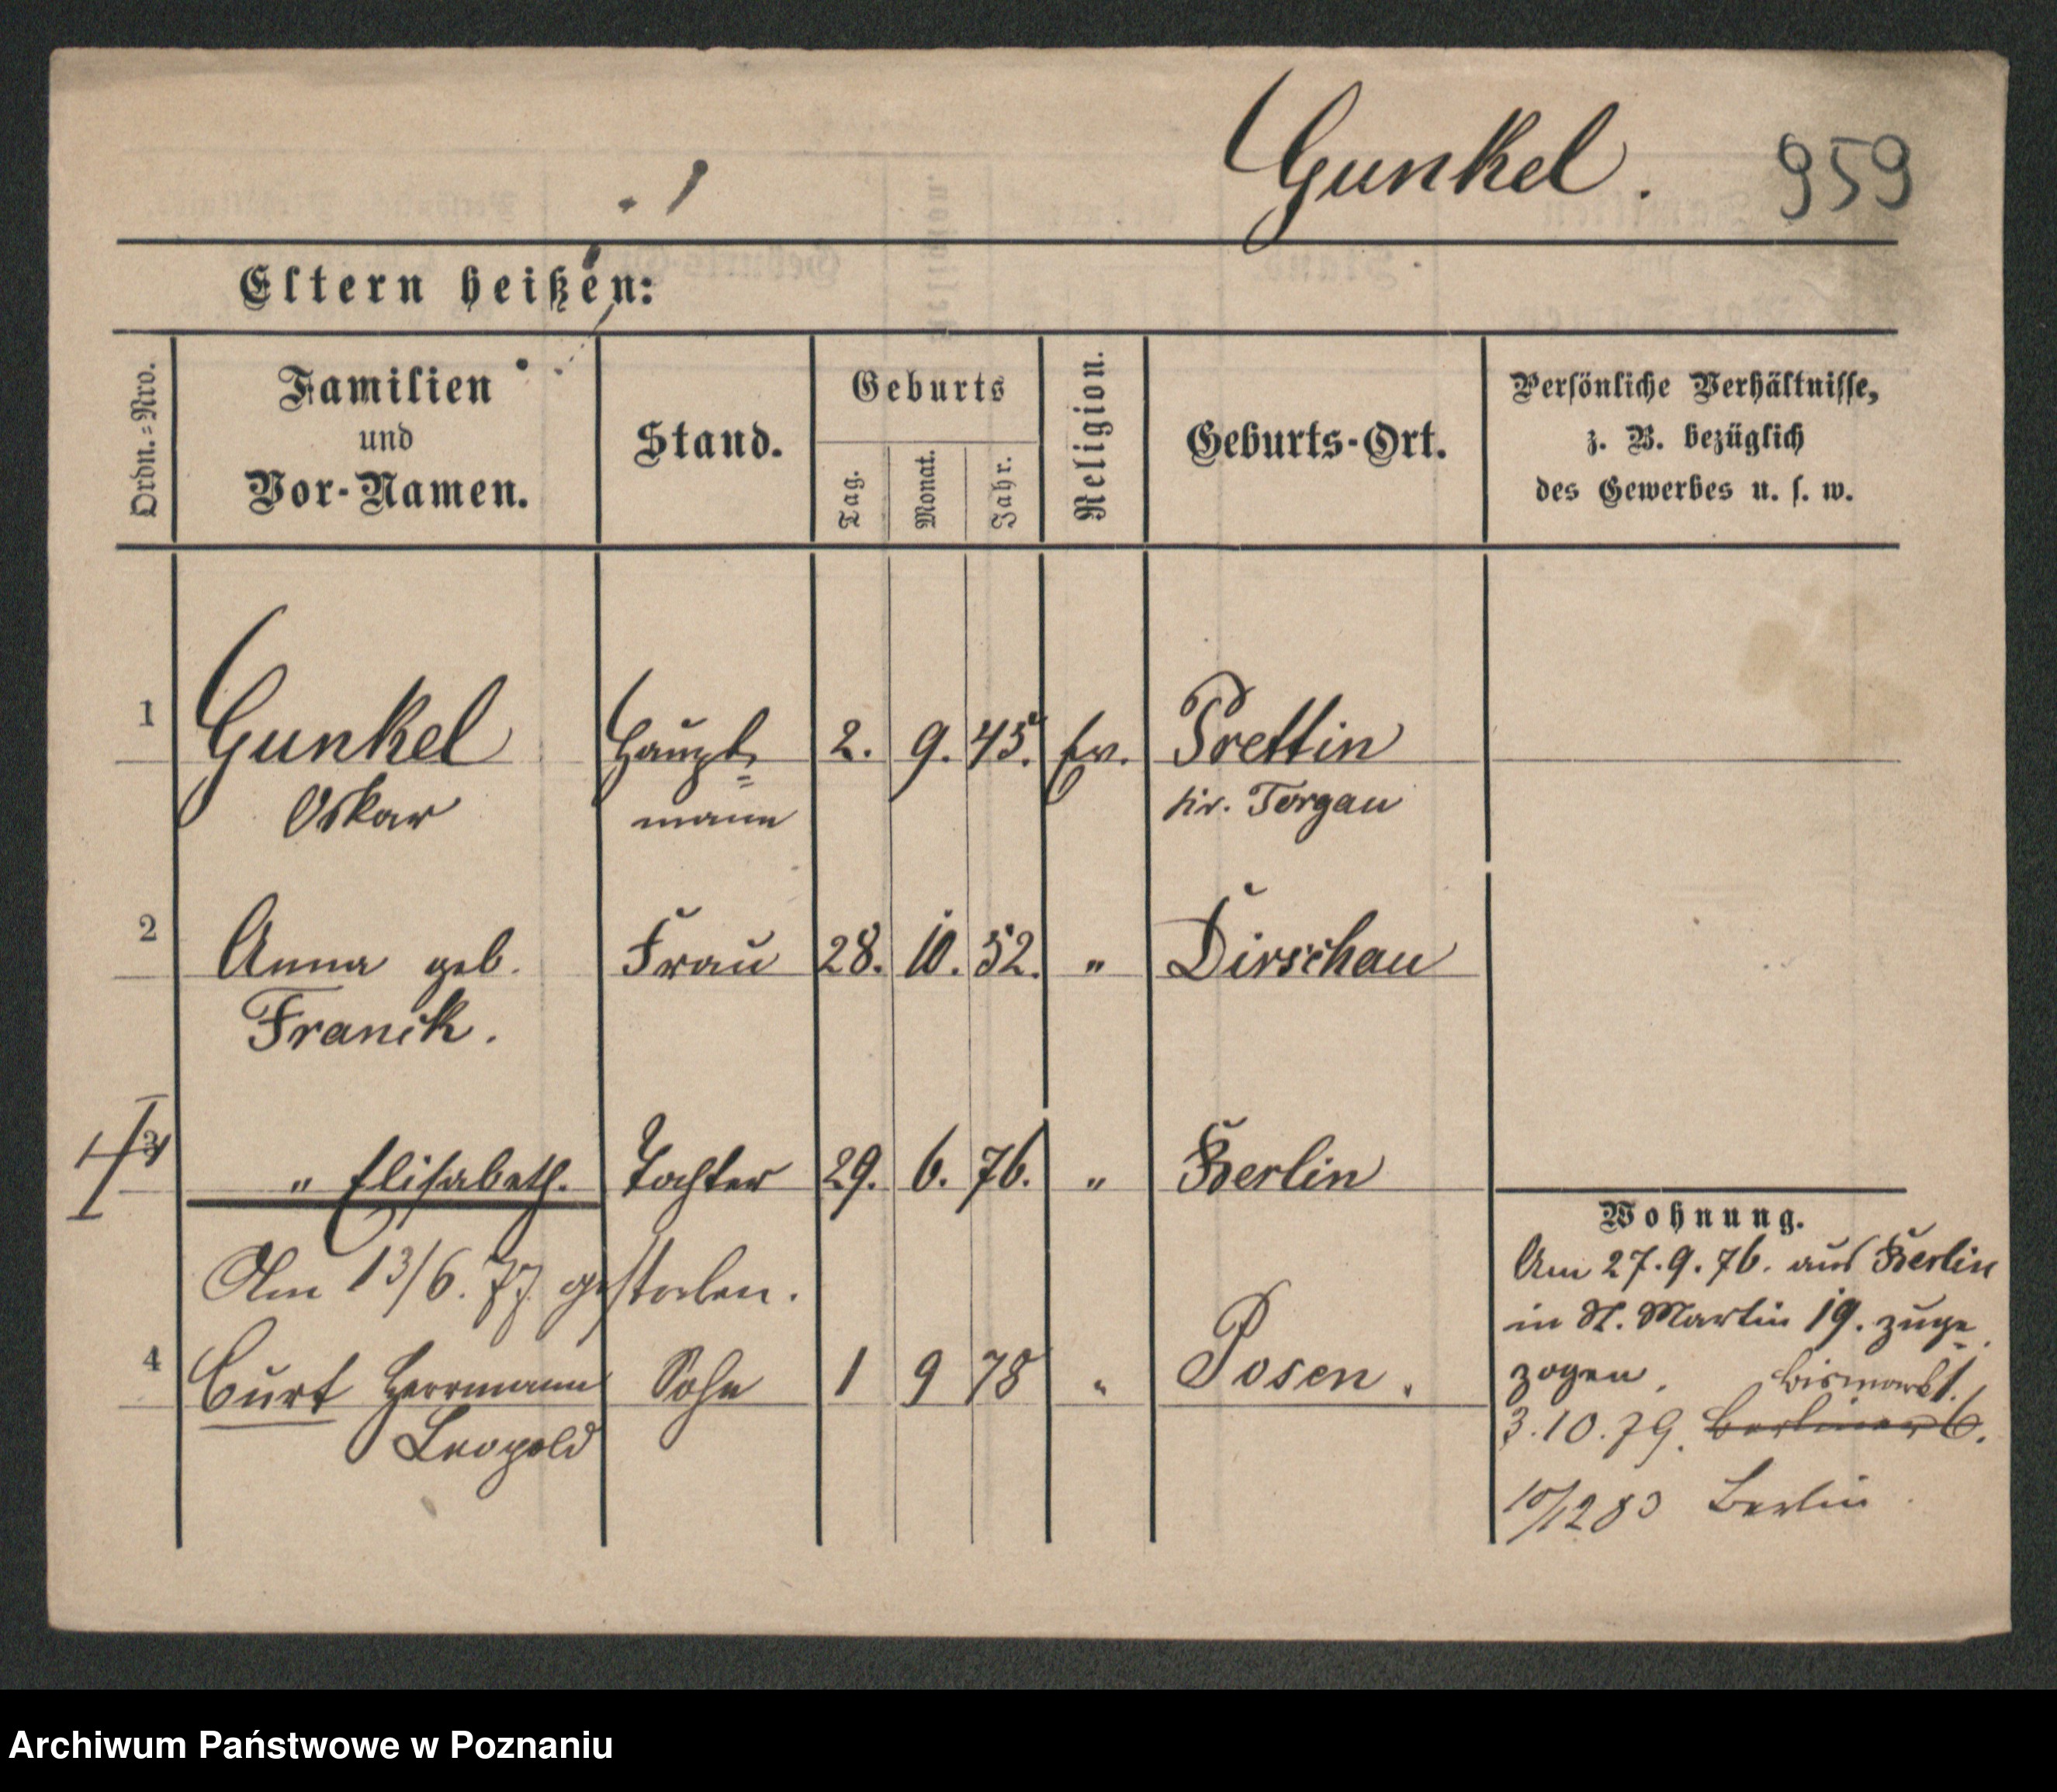 Gunkel. 959
Eltern heißen:
Ordn.=Nro.
Familien
und
Vor-Namen.
Stand.
Geburts
Tag.
Monat.
Jahr.
Religion.
Geburts-Ort.
Persönliche Verhältnisse,
z. B. bezüglich
des Gewerbes u. s. w.
1 Gunkel Haupt= 2. 9. 45. Ev. Prettin
Oskar mann Kr. Torgau
2 Anna geb. Frau 28. 10. 52. " Dirschau
Franck.
3 " Elisabeth. Tochter 29. 6. 76. " Berlin
Am 13/6. 77 gestorben.
4 Curt Herrmann Sohn 1 9 78 " Posen.
Leopold
Wohnung.
Am 27.9.76. aus Berlin
in St. Martin 19. zuge=
zogen. Bismarkt 1.
3.10.79. Berliner 6.
10/12 83 Berlin
Archiwum Państwowe w Poznaniu